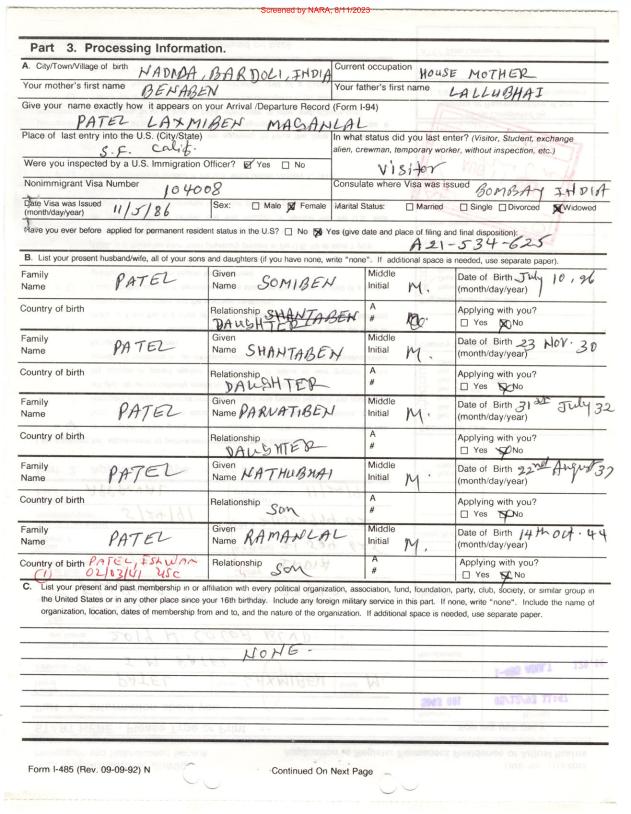 Screened by NARA, 8/11/2023
Part 3. Processing Information.
A. City/Town/Village of birth NADIDA, BARDOLI, INDIA Current occupation HOUSE MOTHER
Your mother's first name BENABEN Your father's first name LALLUBHAI
Give your name exactly how it appears on your Arrival /Departure Record (Form I-94)
PATEL LAXMIBEN MAGANLAL
Place of last entry into the U.S. (City/State) In what status did you last enter? (Visitor, Student, exchange
S.F. Calif. alien, crewman, temporary worker, without inspection, etc.)
Were you inspected by a U.S. Immigration Officer? ☒ Yes ☐ No Visitor
Nonimmigrant Visa Number 104008 Consulate where Visa was issued BOMBAY INDIA
Date Visa was Issued (month/day/year) 11/5/86 Sex: ☐ Male ☒ Female Marital Status: ☐ Married ☐ Single ☐ Divorced ☒ Widowed
Have you ever before applied for permanent resident status in the U.S.? ☐ No ☒ Yes (give date and place of filing and final disposition):
A21-534-625
B. List your present husband/wife, all of your sons and daughters (if you have none, write "none". If additional space is needed, use separate paper).
Family Name PATEL Given Name SOMIBEN Middle Initial M. Date of Birth (month/day/year) July 10, 26
Country of birth Relationship SHANTABEN DAUGHTER A # Applying with you? ☐ Yes ☒ No
Family Name PATEL Given Name SHANTABEN Middle Initial M. Date of Birth (month/day/year) 23 NOV. 30
Country of birth Relationship DAUGHTER A # Applying with you? ☐ Yes ☒ No
Family Name PATEL Given Name PARVATIBEN Middle Initial M. Date of Birth (month/day/year) 31st July 32
Country of birth Relationship DAUGHTER A # Applying with you? ☐ Yes ☒ No
Family Name PATEL Given Name NATHUBHAI Middle Initial M. Date of Birth (month/day/year) 22nd August 37
Country of birth Relationship Son A # Applying with you? ☐ Yes ☒ No
Family Name PATEL Given Name RAMANLAL Middle Initial M. Date of Birth (month/day/year) 14th Oct. 44
Country of birth PATEL, ISHWAR Relationship Son A # Applying with you? ☐ Yes ☒ No
(1) 02/03/41 USC
C. List your present and past membership in or affiliation with every political organization, association, fund, foundation, party, club, society, or similar group in
the United States or in any other place since your 16th birthday. Include any foreign military service in this part. If none, write "none". Include the name of
organization, location, dates of membership from and to, and the nature of the organization. If additional space is needed, use separate paper.
NONE -
Form I-485 (Rev. 09-09-92) N Continued On Next Page